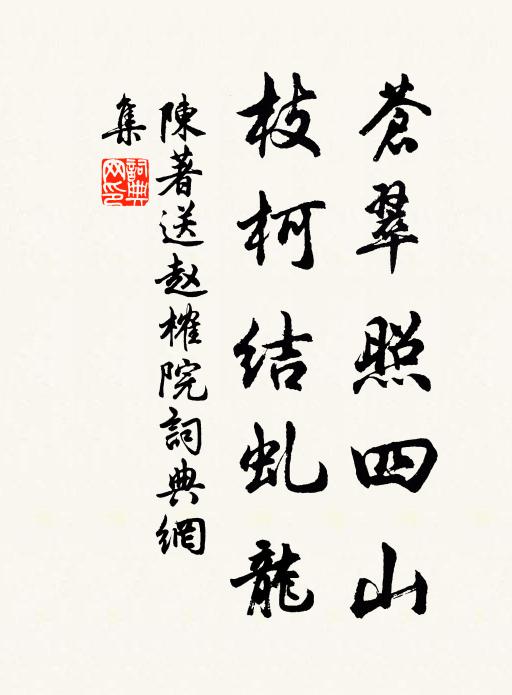 蒼翠照四山
枝柯結虬龍
陳著送赵榷院詞典網
集
詞典网印